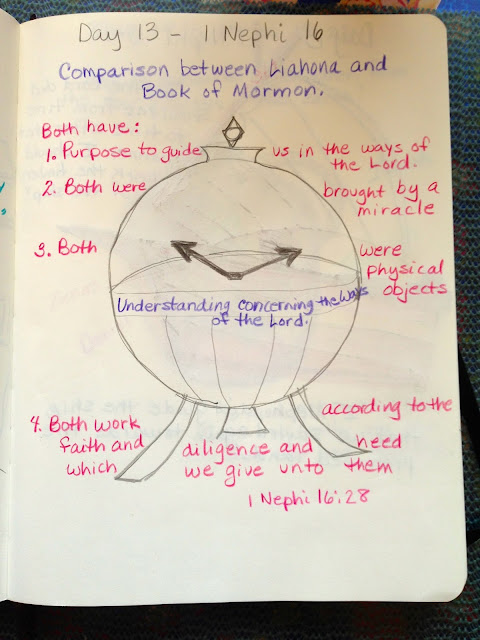 Day 13 - 1 Nephi 16
Comparison between Liahona and
Book of Mormon.
Both have:
1. Purpose to guide us in the ways of
the Lord.
2. Both were brought by a
miracle
3. Both were
physical
objects
Understanding concerning the ways
of the Lord.
4. Both work according to the
faith and diligence and heed
which we give unto them
1 Nephi 16:28